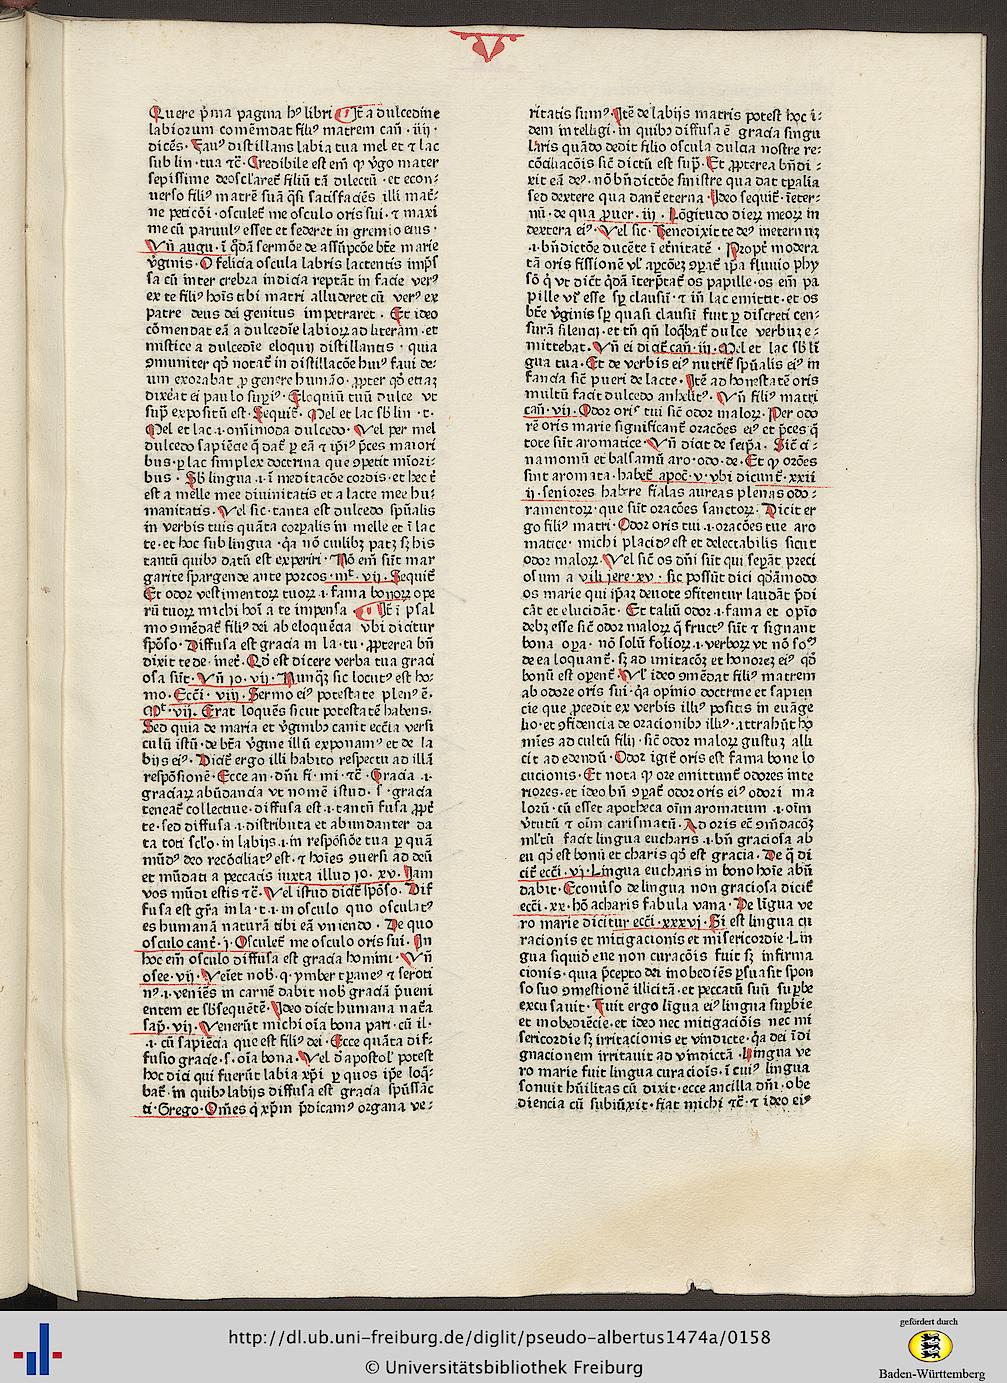 Quere p̄ma pagina hꝰ libri Itē a dulcedine
labiorum comēmdat filiꝰ matrem cañ · iiij ·
dicēs · Fauꝰ distillans labia tua mel et ⁊ lac
sub lin · tua ⁊c̄ · Credibile est em̄ ꝙ v̄go mater
sepissime deoscl'aret᷑ filiū tā dilectū · et econ-
uerso filiꝰ matrē suā q̄si satisfaciēs illi mat᷑-
ne peticōi · osculet᷑ me osculo oris sui · ⁊ maxi
me cū paruulꝰ esset et sederet in gremio eius ·
Vñ augu · ī q̄dā sermōe de assūpcōe btē marie
v̄ginis · O felicia oscula labris lactentis imp̄s
sa cū inter crebra indicia reptāt᷑ in facie verꝰ
ex te filiꝰ hoīs tibi matri alluderet cū verꝰ ex
patre deus dei genitus impetraret · Et ideo
cōmendat eā a dulcedīe labioꝝ ad literam · et
mistice a dulcedīe eloquij distillantis · quia
ꝯmuniter qd̄ notat᷑ in distillacōe huiꝰ faui de-
um exorabat ꝓ genere humāo · ꝓpter qd̄ etiaꝫ
dixerat ei paulo supiꝰ · Eloquiū tuū dulce vt
sup̄ expositū est · Sequit᷑ · Mel et lac sb lin · t ·
Mel et lac · i · om̄imoda dulcedo · Vel per mel
dulcedo sapiēcie q̄ dat᷑ ꝑ eā ⁊ ip̄iꝰ p̄ces maiori
bus · ꝑ lac simplex doctrina que ꝯpetit mīori-
bus · Sb lingua · i · ī meditacōe cordis · et hec ē
est a melle mee diuinitatis et a lacte mee hu-
manitatis · Vel sic · tanta est dulcedo sp̄ualis
in verbis tuis quāta corꝑalis in melle et ī lac
te · et hoc sub lingua · q̄a nō cuilibꝫ patꝫ sꝫ his
tantū quibꝰ datū est experiri · Nō em̄ sūt mar
garite spargende ante porcos · mt᷑ · vij · Sequit᷑
Et odor vestimentoꝝ tuoꝝ · i · fama bonoꝝ ope
rū tuoꝝ michi hoī a te impensa · Itē ī psal
mo ꝯmēdat᷑ filiꝰ dei ab eloquēcia vbi dicitur
spōso · Diffusa est gracia in la · tu · ꝓpterea bn̄
dixit te de · inet᷑ · Qd̄ est dicere verba tua graci
osa sūt · Vñ io · vij · Nunqꝫ sic locutꝰ est ho-
mo · Eccī · viij · Sermo eiꝰ potestate plenꝰ ē ·
Mt᷑ · vij · Erat loquēs sicut potestatē habens ·
Sed quia de maria et v̄ginibꝰ canit ecc̄ia versi
culū istū · de btā v̄gine illū exponamꝰ et de la
bijs eiꝰ · Dicit᷑ ergo illi habito respectu ad illā
respōsionē · Ecce an · dn̄i fi · mi · ⁊c̄ · Gracia · i ·
graciaꝝ abūdancia vt nomē istud · s · gracia
teneat᷑ collectiue · diffusa est · i · tantū fusa ꝓpt᷑
te · sed diffusa · i · distributa et abundanter da
ta toti scl'o · in labijs · i · in respōsiōe tua ꝑ quā
mūdꝰ deo recōciliatꝰ est · ⁊ hoīes ꝯuersi ad deū
et mūdati a peccatis iuxta illud io · xv · Iam
vos mūdi estis ⁊c̄ · Vel istud dicit᷑ spōso · Dif
fusa est gr̄a in la · t · i · in osculo quo osculatꝰ
es humanā naturā tibi eā vniendo · De quo
osculo cant᷑ · j · Osculet᷑ me osculo oris sui · In
hoc em̄ osculo diffusa est gracia homini · Vñ
osee · vij · Veīet nob̄ · q · ymber tꝑaneꝰ ⁊ seroti
nꝰ · i · veniēs in carnē dabit nob̄ graciā p̄ueni
entem et sb̄sequētē · Ideo dicit humana nat᷑a
sap̄ · vij · Venerūt michi oīa bona pari · cū il ·
· i · cū sapiēcia que est filiꝰ dei · Ecce quāta dif-
fusio gracie · s · oīa bona · Vel d̄ apostol' potest
hoc dici qui fuerūt labia xp̄i ꝑ quos ip̄e loq̄-
bat᷑ · in quibꝰ labijs diffusa est gracia sp̄ussāc
ti · Grego · Om̄es q̄ xp̄m p̄dicamꝰ organa ve-
ritatis sumꝰ · Itē de labijs matris potest hoc i-
dem intelligi · in quibꝰ diffusa ē gracia singu
laris quādo dedit filio oscula dulcia nostre re-
cōciliacōis sic̄ dictū est sup̄ · Et ꝓpterea bn̄di -
xit eā deꝰ · nō bn̄dictōe sinistre qua dat tꝑalia
sed dextere qua dant᷑ eterna · Ideo sequit᷑ · īeter-
nū · de qua ꝓuer · iij · Lōgitudo dieꝝ meoꝝ in
dextera eiꝰ · Vel sic · Benedixit te deꝰ ineternuꝫ
· i · bn̄dictōe ducēte ī et᷑nitatē · Propt᷑ modera
tā oris fissionē vl' apcōeꝫ ꝯpat᷑ ip̄a fluuio phy
sō q̄ vt dict᷑ q̄dā īterp̄tat᷑ os papille · os em̄ pa
pille vr̄ esse sꝑ clausū · ⁊ in̄ lac emittit · et os
btē v̄ginis sꝑ quasi clausū fuit ꝑ discreti cen-
surā silencij · et tn̄ qn̄ loq̄bat᷑ dulce verbuꝫ e-
mittebat · Vñ ei dicit᷑ cañ · iij · Mel et lac sb lī
gua tua · Et de verbis eiꝰ nutrit᷑ sp̄ualis eiꝰ in
fancia sic̄ pueri de lacte · Itē ad honestatē oris
multū facit dulcedo anhelitꝰ · Vñ filiꝰ matri
cañ · vij · Odor orisꝰ tui sic̄ odor maloꝝ · Per odo
rē oris marie significant᷑ oracōes eiꝰ et p̄ces q̄
tote sūt aromatice · Vñ dicit de seip̄a · Sic̄ ci-
namomū et balsamū aro · odo · de · Et ꝙ orōes
sint aromata · habet᷑ apoc̄ · v · vbi dicunt᷑ · xxii
ij · seniores habere fialas aureas plenas odo-
ramentoꝝ · que sūt oracōes sanctoꝝ · Dicit er
go filiꝰ matri · Odor oris tui · i · oracōes tue aro
matice · michi placidꝰ est et delectabilis sicut
odor maloꝝ · Vel sic̄ os dn̄i sūt qui sepat᷑ preci
osum a vili iere · xv · sic possūt dici qd̄āmodo
os marie qui ip̄aꝫ deuote ꝯfitentur laudāt p̄di
cāt et elucidāt · Et taliū odor · i · fama et opīo
debꝫ esse sic̄ odor maloꝝ q̄ fructꝰ sūt ⁊ signant
bona oꝑa · nō solū folioꝝ · i · verboꝝ vt nō soꝰ
de ea loquant᷑ · sꝫ ad imitacōꝫ et honoreꝫ eiꝰ qd̄
bonū est oꝑent᷑ · Vl' ideo ꝯmēdat filiꝰ matrem
ab odore oris sui · q̄a opinio doctrine et sapien
cie que ꝓcedit ex verbis illiꝰ positis in euāge
lio · et ꝯfidencia de oracionibꝰ illiꝰ · attrahūt ho
mīes ad cultū filij · sic̄ odor maloꝝ gustuꝫ alli
cit ad edendū · Odor igit᷑ oris est fama bone lo
cucionis · Et nota ꝙ ore emittunt᷑ odores inte
riores · et ideo bn̄ ꝯpat᷑ odor oris eiꝰ odori ma
lorū · cū esset apotheca oīm aromatum · i · oīm
v̄tutū ⁊ oīm carismatū · Ad oris ec̄ ꝯm̄dacōꝫ
ml'tū facit lingua eucharis · i · bn̄ graciosa ab
eu qd̄ est bonū et charis qd̄ est gracia · De q̄ di
cit᷑ eccī · vj · Lingua eucharis in bono hoīe abū
dabit · Econūso de lingua non graciosa dicit᷑
eccī · xx · hō acharis fabula vana · De līgua ve
ro marie dicitur eccī · xxxvj · Si est lingua cu
racionis et mitigacionis et misericordie · Lin
gua siquid eue non curacōis fuit sꝫ infirma
cionis · qua p̄cepto dei inobediēs ꝑsuasit spon
so suo ꝯmestionē illicitā · et peccatū suū suꝑbe
excusauit · Fuit ergo līgua eiꝰ lingua suꝑbie
et inobediēcie · et ideo nec mitigaciōis nec mi
sericordie sꝫ irritacionis et vindicte · q̄a dei īdi
gnacionem irritauit ad vindictā · Lingua ve
ro marie fuit lingua curaciōis · ī cuiꝰ lingua
sonuit hūilitas cū dixit · ecce ancilla dn̄i · obe
diencia cū subiūxit · fiat michi ⁊c̄ · ⁊ ideo eiꝰ
http://dl.ub.uni-freiburg.de/diglit/pseudo-albertus1474a/0158
© Universitätsbibliothek Freiburg
gefördert durch
Baden-Württemberg